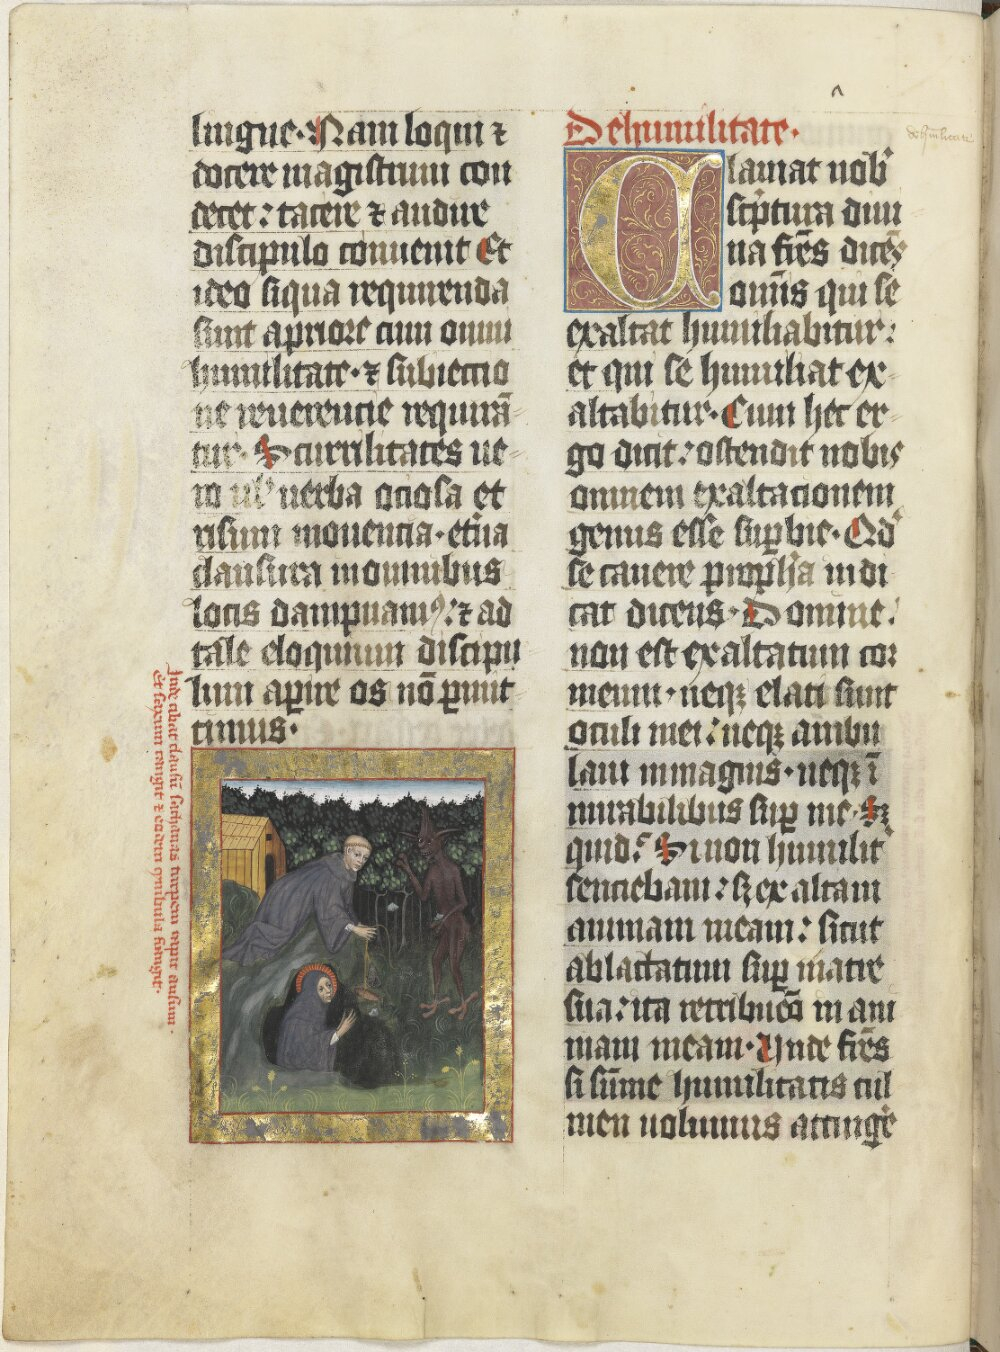 lingue. Nam loqui ⁊
docere magistrum con
decet: tacere ⁊ audire
discipulo conuenit Et
ideo siqua requirenda
sunt apriore cum omni
humilitate. ⁊ subiectio
ne reuerentie requirā
tur. Scurrilitates ue
ro uł uerba ociosa et
risum mouentia. et̄na
clausura in omnibus
locis dampnamꝰ: ⁊ ad
tale eloquium discipu
lum apire os nō pmit
timus.
Inde cibat clausū sathanas turpem
De humilitate.
de hūilitate
Clamat nob
sc̄ptura diui
na frēs dicēs
omīs qui se
exaltat humiliabitur:
et qui se humiliat ex
altabitur. Cum hec er
go dicit: ostendit nobis
omnem exaltacionem
genus esse supbie. Qd
se cauere ppha indi
cat dicens. Domine:
non est exaltatum cor
meum. neqꝫ elati sunt
oculi mei: neqꝫ ambu
laui in magnis. neqꝫ ī
mirabilibus sup me. Sꝫ
quid: Si non humilit
sentiebam: sꝫ exaltaui
animam meam: sicut
ablactatum sup matre
sua: ita retribues in ani
mam meam. Unde frēs
si sūme humilitatis cul
men uolumus attingē